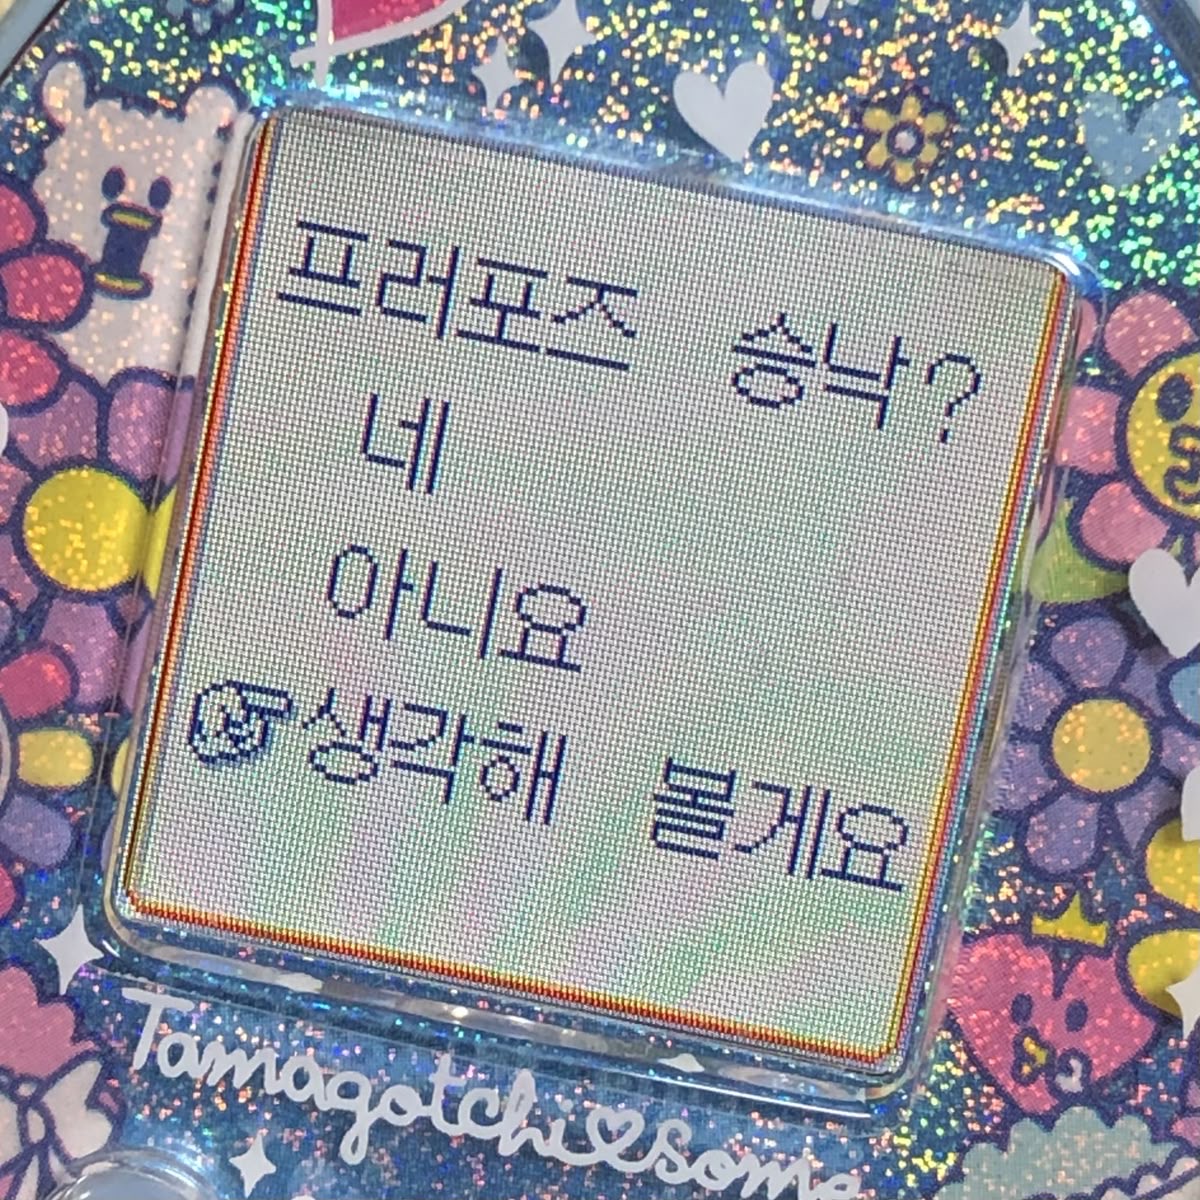 프러포즈 승낙?
네
아니요
생각해 볼게요
Tamagotchi♡Some